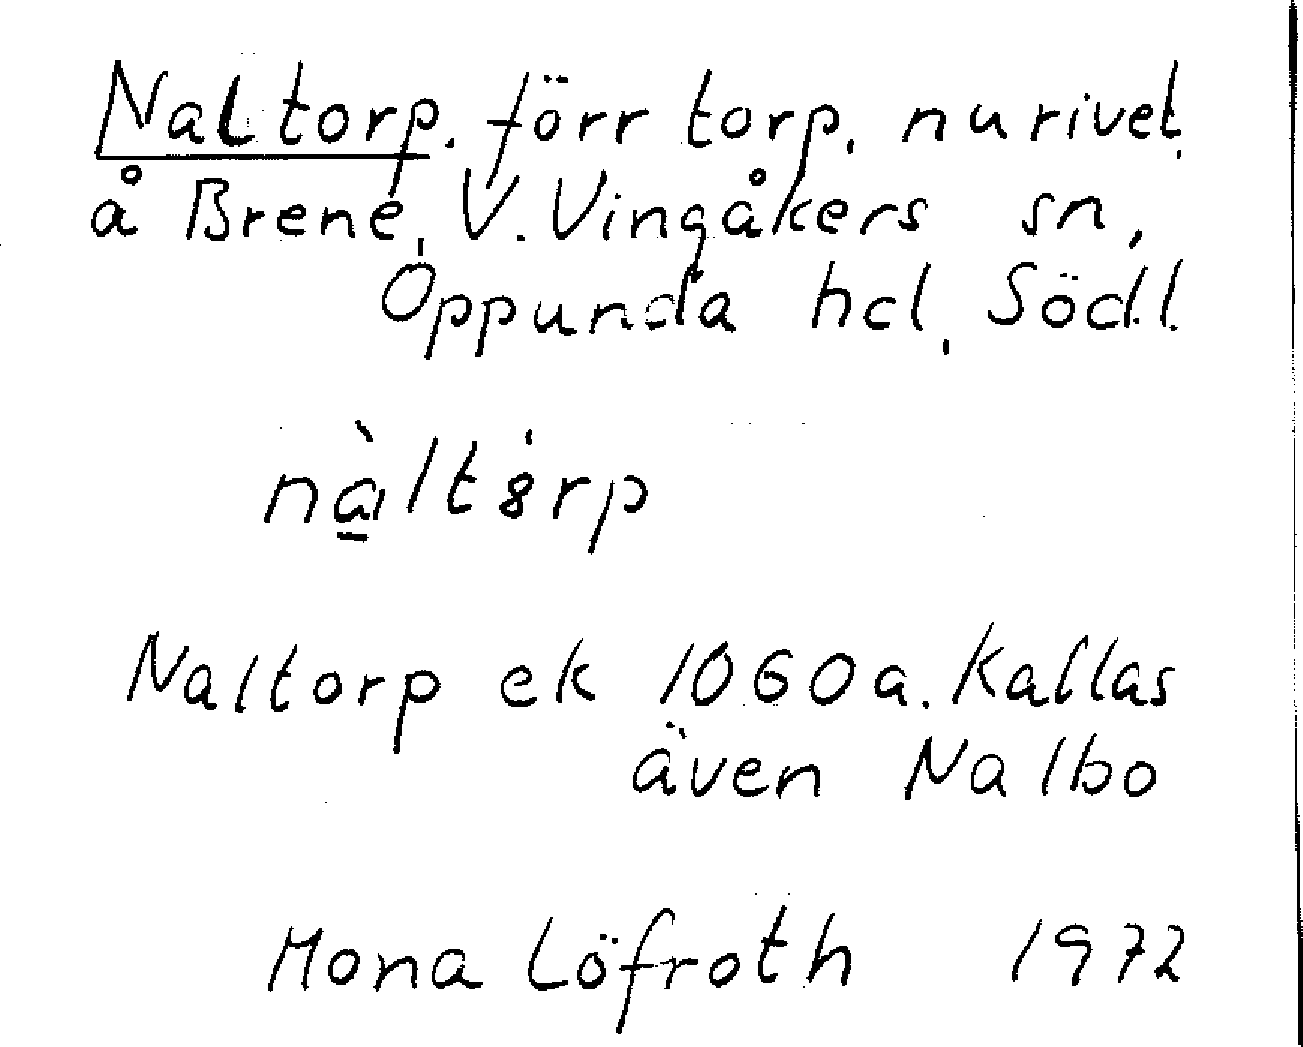 Naltorp. förr torp, nu rivet,
å Brene, V. Vingåkers sn,
Oppunda hd, Södl.
Naltorp ek 10 60 a. Kallas
även Nalbo
Mona Löfroth 1972